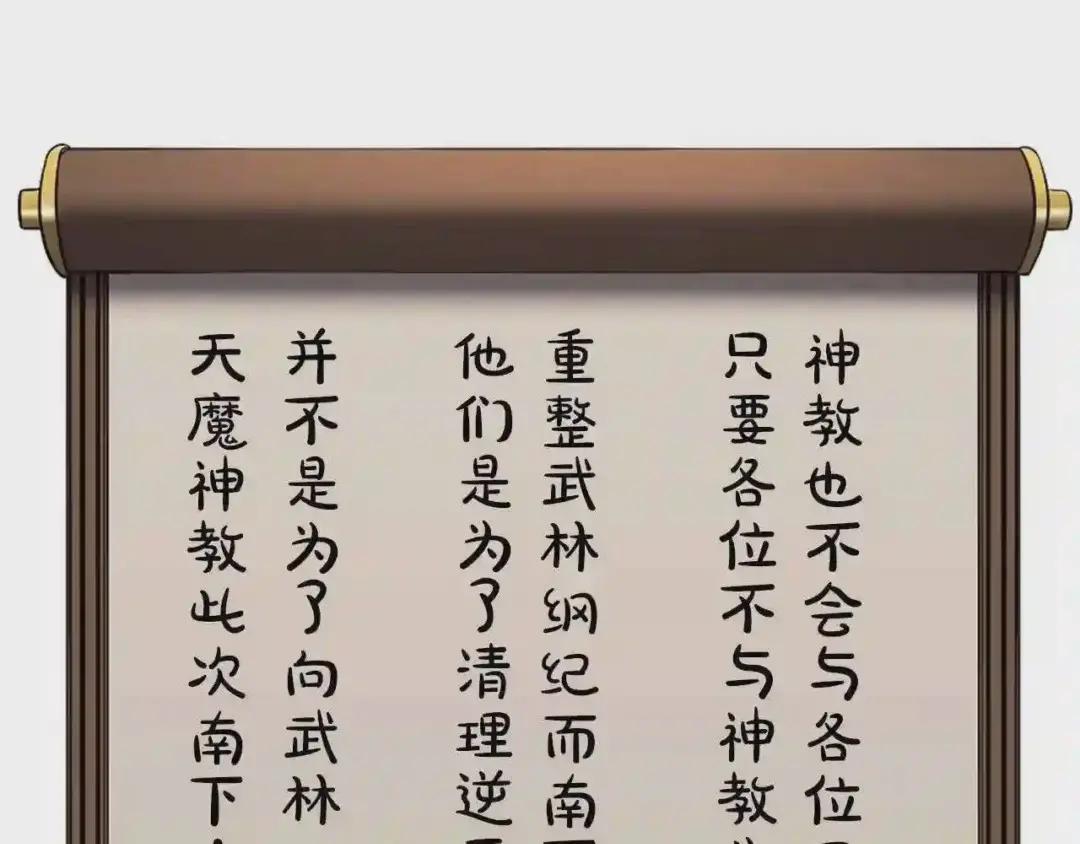 天魔神教此次南下
并不是为了向武林
他们是为了清理逆
重整武林纲纪而南
只要各位不与神教
神教也不会与各位